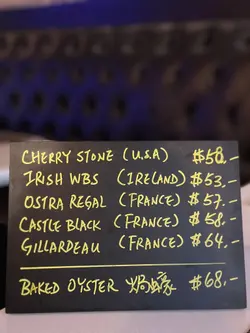 CHERRY STONE (U.S.A) $58.-
IRISH WBS (IRELAND) $53.-
OSTRA REGAL (FRANCE) $57.-
CASTLE BLACK (FRANCE) $58.-
GILLARDEAU (FRANCE) $64.-
BAKED OYSTER 焗蠔 $68.-